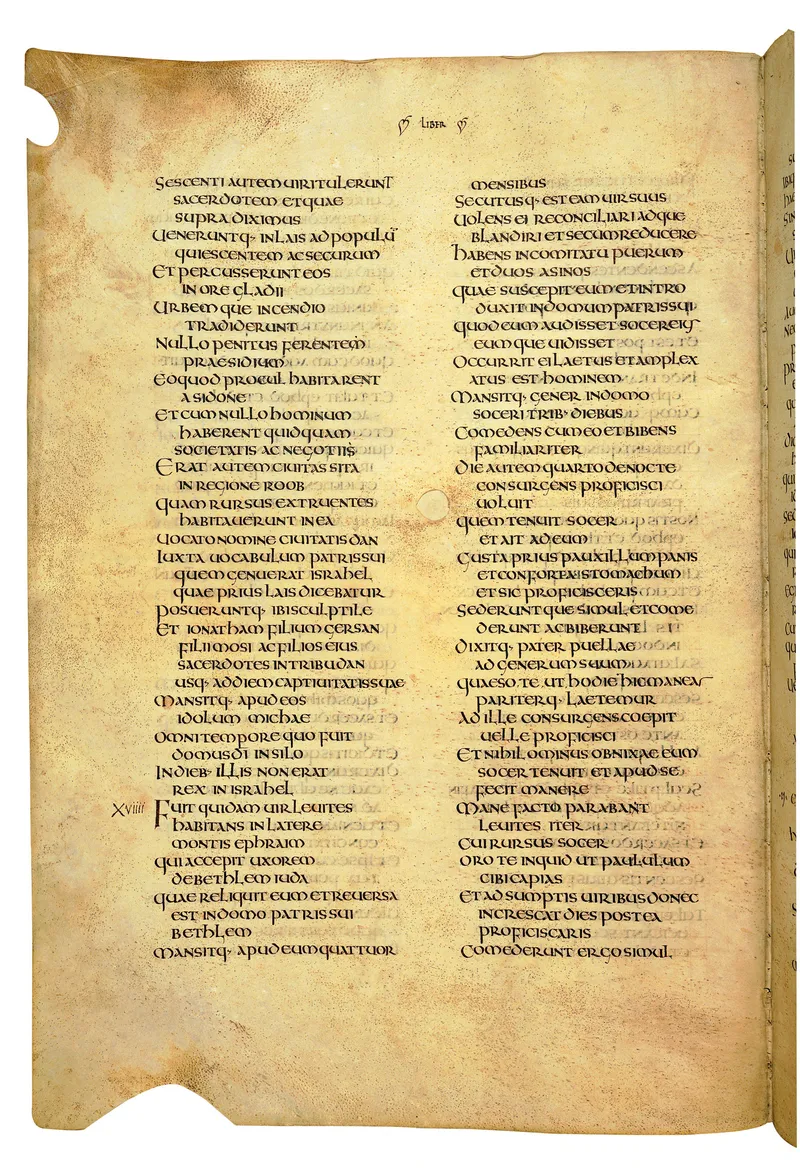 LIBER
SESCENTI AUTEM UIRI TULERUNT
SACERDOTEM ET QUAE
SUPRA DIXIMUS
UENERUNTQ· IN LAIS AD POPULŪ
QUIESCENTEM AC SECURUM
ET PERCUSSERUNT EOS
IN ORE GLADII
URBEMQUE INCENDIO
TRADIDERUNT
NULLO PENITUS FERENTEM
PRAESIDIUM
EO QUOD PROCUL HABITARENT
A SIDONE
ET CUM NULLO HOMINUM
HABERENT QUIDQUAM
SOCIETATIS AC NEGOTIIS
ERAT AUTEM CIUITAS SITA
IN REGIONE ROOB
QUAM RURSUS EXTRUENTES
HABITAUERUNT IN EA
UOCATO NOMINE CIUITATIS DAN
IUXTA UOCABULUM PATRIS SUI
QUEM GENUERAT ISRAHEL
QUAE PRIUS LAIS DICEBATUR
POSUERUNTQ· IBI SCULPTILE
ET IONATHAM FILIUM GERSAN
FILII MOSI AC FILIOS EIUS
SACERDOTES IN TRIBU DAN
USQ· AD DIEM CAPTIUITATIS SUAE
MANSITQ· APUD EOS
IDOLUM MICHAE
OMNI TEMPORE QUO FUIT
DOMUS DI IN SILO
IN DIEB· ILLIS NON ERAT
REX IN ISRAHEL
XVIIII FUIT QUIDAM UIR LEUITES
HABITANS IN LATERE
MONTIS EPHRAIM
QUI ACCEPIT UXOREM
DE BETHLEM IUDA
QUAE RELIQUIT EUM ET REUERSA
EST IN DOMO PATRIS SUI
BETHLEM
MANSITQ· APUD EUM QUATTUOR
MENSIBUS
SECUTUSQ· EST EAM UIR SUUS
UOLENS EI RECONCILIARI ADQUE
BLANDIRI ET SECUM REDUCERE
HABENS IN COMITATU PUERUM
ET DUOS ASINOS
QUAE SUSCEPIT EUM ET INTRO
DUXIT IN DOMUM PATRIS SUI
QUOD EUM AUDISSET SOCER EIUS
EUMQUE UIDISSET
OCCURRIT EI LAETUS ET AMPLEX
ATUS EST HOMINEM
MANSITQ· GENER IN DOMO
SOCERI TRIB· DIEBUS
COMEDENS CUM EO ET BIBENS
FAMILIARITER
DIE AUTEM QUARTO DE NOCTE
CONSURGENS PROFICISCI
UOLUIT
QUEM TENUIT SOCER
ET AIT AD EUM
GUSTA PRIUS PAUXILLUM PANIS
ET CONFORTA STOMACHUM
ET SIC PROFICISCERIS
SEDERUNTQUE SIMUL ET COME
DERUNT AC BIBERUNT
DIXITQ· PATER PUELLAE
AD GENERUM SUUM
QUAESO TE UT HODIE HIC MANEAS
PARITERQ· LAETEMUR
AD ILLE CONSURGENS COEPIT
UELLE PROFICISCI
ET NIHILOMINUS OBNIXAE EUM
SOCER TENUIT ET APUD SE
FECIT MANERE
MANE FACTO PARABANT
LEUITES ITER
CUI RURSUS SOCER
ORO TE INQUID UT PAULULUM
CIBI CAPIAS
ET ADSUMPTIS UIRIBUS DONEC
INCRESCAT DIES POSTEA
PROFICISCARIS
COMEDERUNT ERGO SIMUL